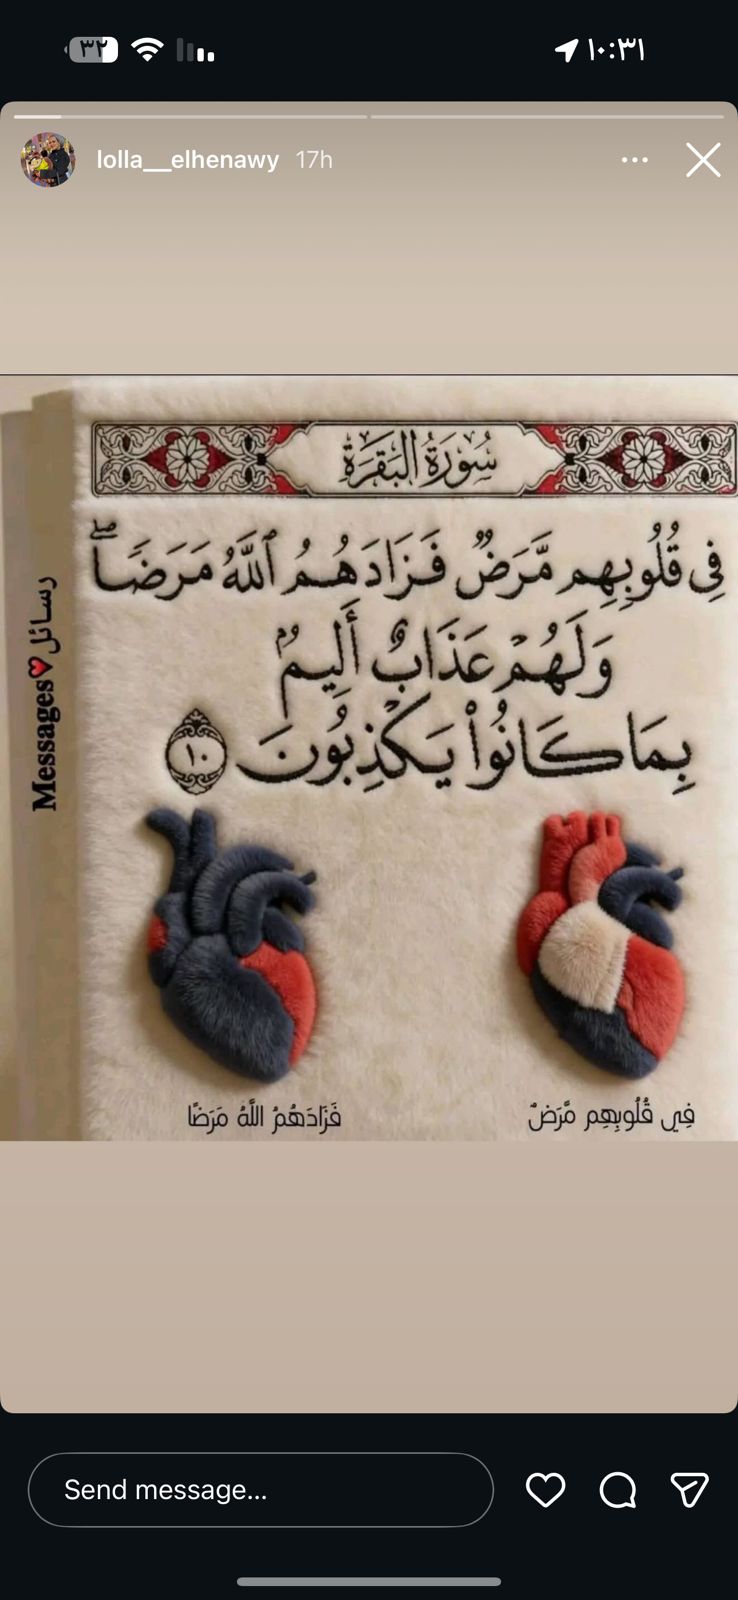 ١٠:٣١
٣٢
lolla__elhenawy 17h
سُورَةُ البَقَرَةِ
فِي قُلُوبِهِم مَّرَضٌ فَزَادَهُمُ ٱللَّهُ مَرَضًاۖ
وَلَهُمْ عَذَابٌ أَلِيمٌۢ
بِمَا كَانُوا۟ يَكْذِبُونَ ١٠
رسائل♥Messages
فِي قُلُوبِهِم مَّرَضٌ
فَزَادَهُمُ اللَّهُ مَرَضًا
Send message...